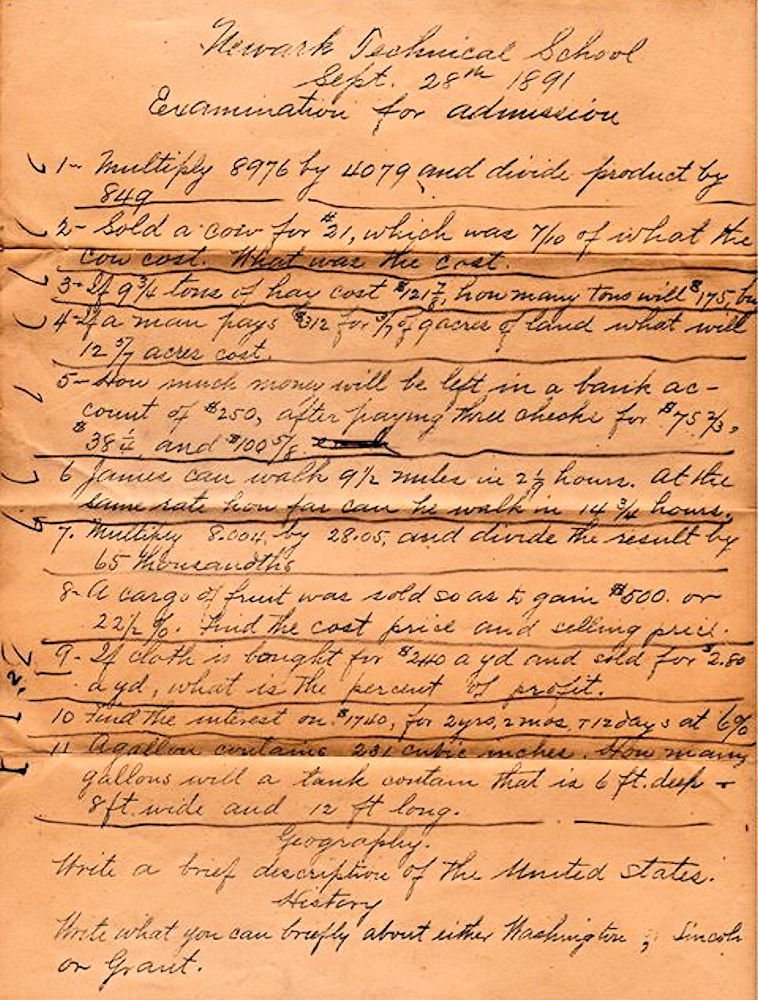 Newark Technical School
Sept. 28th 1891
Examination for admission
1- Multiply 8976 by 4079 and divide product by
849
2- Sold a cow for $21, which was 7/10 of what the
cow cost. What was the cost.
3- If 9 3/4 tons of hay cost $121 7/8, how many tons will $175, buy
4- If a man pays $312 for 3/7 of 9 acres of land what will
12 5/7 acres cost.
5- How much money will be left in a bank ac-
count of $250, after paying three checks for $75 2/3,
$38 1/4 and $100 5/8.
6 James can walk 9 1/2 miles in hours. At the
same rate how far can he walk in 14 3/4 hours.
7. Multiply 8.004, by 28.05, and divide the result by
65 thousandths
8- A cargo of fruit was sold so as to gain $500. or
22 1/2 %. Find the cost price and selling price.
9- If cloth is bought for $2.40 a yd and sold for $2.80
a yd, what is the percent of profit.
10 Find the interest on $1740, for 2 yrs, 2 mos, + 12 days at 6%
11 A gallon contains 231 cubic inches. How many
gallons will a tank contain that is 6 ft. deep -
8 ft. wide and 12 ft long.
Geography.
Write a brief description of the United States.
History
Write what you can briefly about either Washington, Lincoln
or Grant.